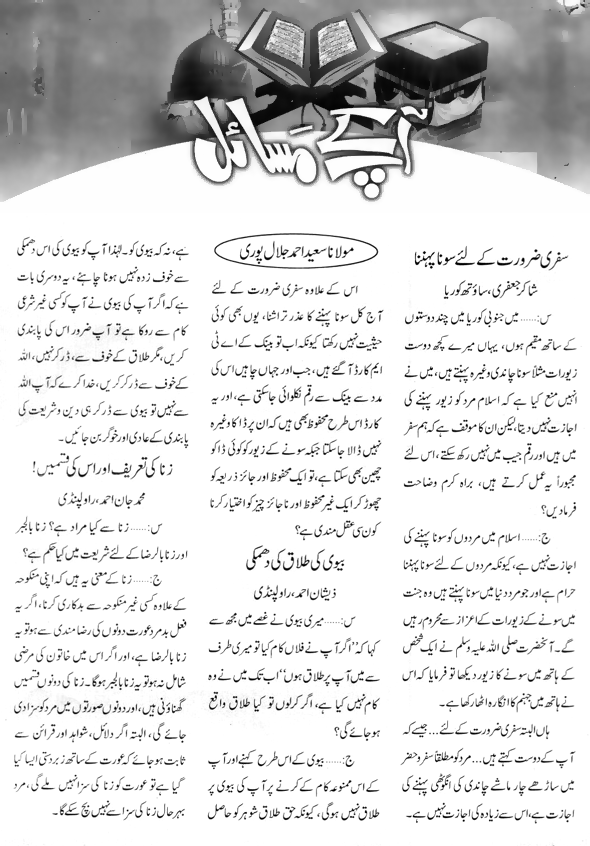 آپ کے مسائل
مولانا سعید احمد جلال پوری
سفری ضرورت کے لئے سونا پہننا
شاکر جعفری، ساؤتھ کوریا
س:...... میں جنوبی کوریا میں چند دوستوں
کے ساتھ مقیم ہوں، یہاں میرے کچھ دوست
زیورات مثلاً سونا چاندی وغیرہ پہنتے ہیں، میں نے
انہیں منع کیا ہے کہ اسلام مرد کو زیور پہننے کی
اجازت نہیں دیتا لیکن ان کا موقف ہے کہ ہم سفر
میں ہیں اور رقم جیب میں نہیں رکھ سکتے، اس لئے
مجبوراً یہ عمل کرتے ہیں، براہ کرم وضاحت
فرمادیں؟
ج:...... اسلام میں مردوں کو سونا پہننے کی
اجازت نہیں ہے، کیونکہ مردوں کے لئے سونا پہننا
حرام ہے اور جو مرد دنیا میں سونا پہنتے ہیں وہ جنت
میں سونے کے زیورات کے اعزاز سے محروم رہیں
گے۔ آنحضرت صلی اللہ علیہ وسلم نے ایک شخص
کے ہاتھ میں سونے کا زیور دیکھا تو فرمایا کہ اس
نے ہاتھ میں جہنم کا انگارہ اٹھا رکھا ہے۔
ہاں البتہ سفری ضرورت کے لئے... جیسے کہ
آپ کے دوست کہتے ہیں... مرد کو مطلقاً سفر و حضر
میں ساڑھے چار ماشے چاندی کی انگوٹھی پہننے کی
اجازت ہے، اس سے زیادہ کی اجازت نہیں ہے۔
اس کے علاوہ سفری ضرورت کے لئے
آج کل سونا پہننے کا عذر تراشنا، یوں بھی کوئی
حیثیت نہیں رکھتا کیونکہ اب تو بینک کے اے ٹی
ایم کارڈ آگئے ہیں، جب اور جہاں چاہیں اس کی
مدد سے بینک سے رقم نکلوائی جاسکتی ہے، اور یہ
کارڈ اس طرح محفوظ بھی ہیں کہ ان پر ڈاکا وغیرہ
نہیں ڈالا جاسکتا جبکہ سونے کے زیور کو کوئی ڈاکو
چھین بھی سکتا ہے، تو ایک محفوظ اور جائز ذریعہ کو
چھوڑ کر ایک غیر محفوظ اور ناجائز چیز کو اختیار کرنا
کون سی عقل مندی ہے؟
بیوی کی طلاق کی دھمکی
ذیشان احمد، راولپنڈی
س:...... میری بیوی نے غصے میں مجھ سے
کہا کہ ”اگر آپ نے فلاں کام کیا تو میری طرف
سے میں آپ پر طلاق ہوں“ اب تک میں نے وہ
کام نہیں کیا ہے، اگر کرلوں تو کیا طلاق واقع
ہوجائے گی؟
ج:...... بیوی کے اس طرح کہنے اور آپ
کے اس ممنوعہ کام کے کرنے پر آپ کی بیوی پر
طلاق نہیں ہوگی، کیونکہ حق طلاق شوہر کو حاصل
ہے، نہ کہ بیوی کو۔ لہٰذا آپ کو بیوی کی اس دھمکی
سے خوف زدہ نہیں ہونا چاہئے، یہ دوسری بات
ہے کہ اگر آپ کی بیوی نے آپ کو کسی غیر شرعی
کام سے روکا ہے تو آپ ضرور اس کی پابندی
کریں، مگر طلاق کے خوف سے، ڈر کر نہیں، اللہ
کے خوف سے ڈر کر کریں، خدا کرے کہ آپ اللہ
سے نہیں تو بیوی سے ڈر کر ہی دین و شریعت کی
پابندی کے عادی اور خوگر بن جائیں۔
زنا کی تعریف اور اس کی قسمیں!
محمد جان احمد، راولپنڈی
س:...... زنا سے کیا مراد ہے؟ زنا بالجبر
اور زنا بالرضا کے لئے شریعت میں کیا حکم ہے؟
ج:...... زنا کے معنی یہ ہیں کہ اپنی منکوحہ
کے علاوہ کسی غیر منکوحہ سے بدکاری کرنا، اگر یہ
فعل بد مرد عورت دونوں کی رضا مندی سے ہو تو یہ
زنا بالرضا ہے، اور اگر اس میں خاتون کی مرضی
شامل نہ ہو تو یہ زنا بالجبر ہوگا۔ زنا کی دونوں قسمیں
گھناؤنی ہیں، اور دونوں صورتوں میں مرد کو سزا دی
جائے گی، البتہ اگر دلائل، شواہد اور قرائن سے
ثابت ہوجائے کہ عورت کے ساتھ زبردستی ایسا کیا
گیا ہے تو عورت کو زنا کی سزا نہیں ملے گی، مرد
بہر حال زنا کی سزا سے نہیں بچ سکے گا۔